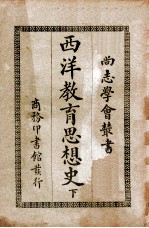 尚志學會叢書
西洋教育思想史 下
商務印書館發行